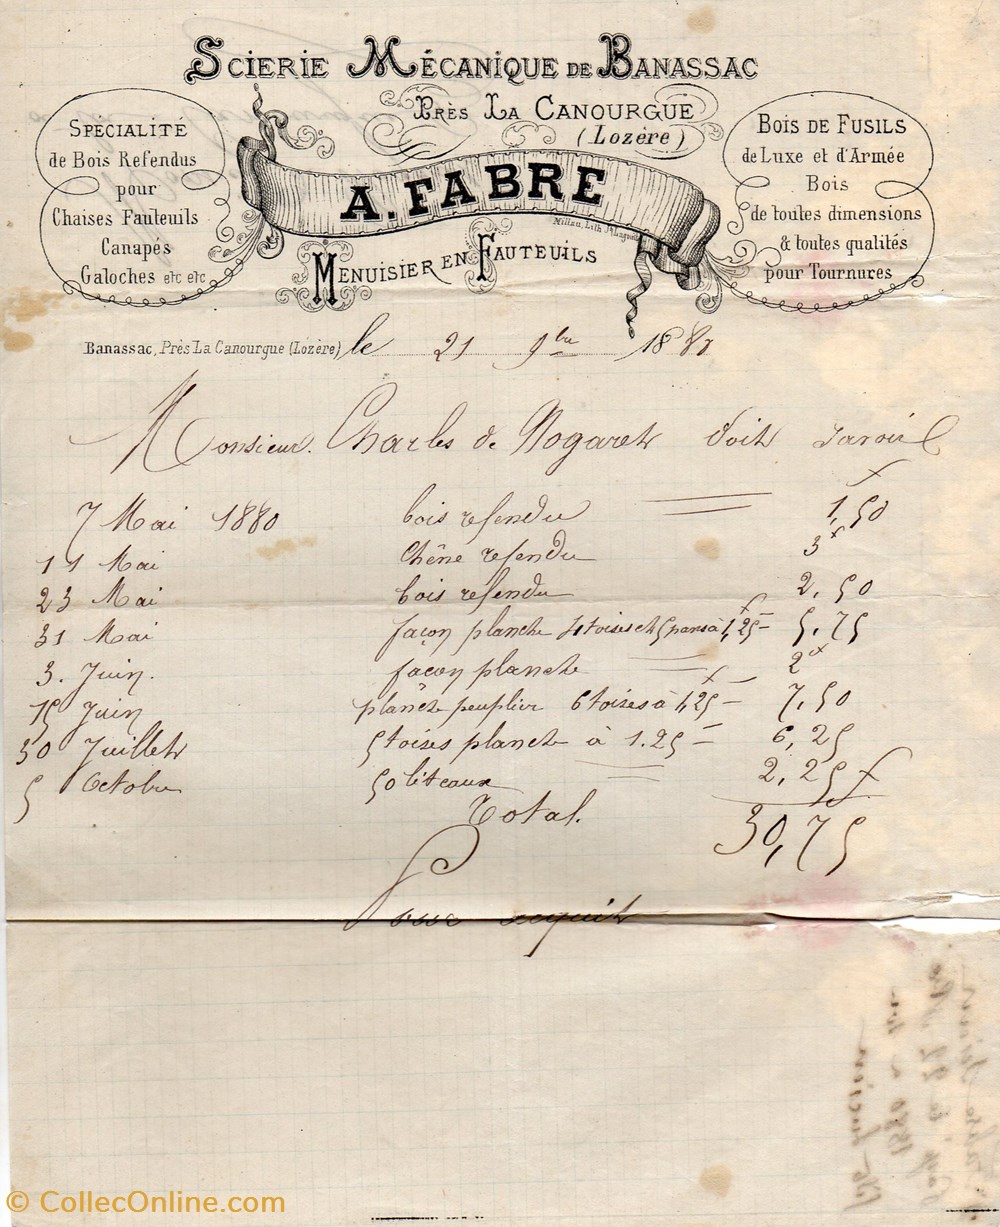 SCIERIE MÉCANIQUE DE BANASSAC
PRÈS LA CANOURGUE
(Lozère)
SPECIALITÉ
de Bois Refendus
pour
Chaises Fauteuils
Canapés
Galoches etc etc
A. FABRE
Millau, Lith.
MENUISIER EN FAUTEUILS
BOIS DE FUSILS
de Luxe et d'Armée
Bois
de toutes dimensions
& toutes qualités
pour Tournures
Banassac, Près La Canourgue (Lozère) le 21 9bre 1880
Monsieur. Charles de Nogaret doit savoir
7 Mai 1880 bois refendu 1,50
11 Mai chêne refendu 3f
23 Mai bois refendu 2,50
31 Mai façon planche 4 toises et 5 pans à 1,25 - 5,75
3. Juin. façon planche 2f
15 Juin planche peuplier 6 toises à 1,25 - 7,50
30 Juillet 5 toises planche à 1.25 - 6,25
5 Octobre 50 liteaux 2,25 f
Total. 30,75
Pour acquit
© CollecOnline.com